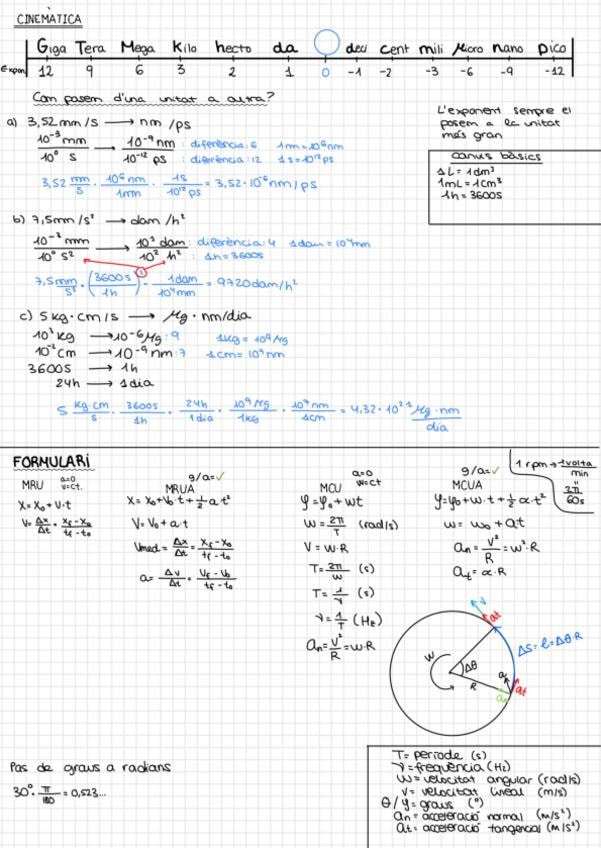 CINEMÀTICA
Giga Tera Mega Kilo hecto da deci cent mili Micro nano pico
Expon 12 9 6 3 2 1 0 -1 -2 -3 -6 -9 -12
Com passem d'una unitat a altra?
L'exponent sempre el
posem a la unitat
més gran
canvis bàsics
1L = 1dm³
1mL = 1cm³
1h = 3600s
a) 3,52 mm/s → nm/ps
10⁻³ mm / 10⁰ s → 10⁻⁹ nm / 10⁻¹² ps : diferència: 6 1mm = 10⁶ nm
: diferència: 12 1s = 10¹² ps
3,52 mm/s · 10⁶ nm/1mm · 1s/10¹² ps = 3,52·10⁻⁶ nm/ps
b) 7,5mm/s² → dam/h²
10⁻³ mm / 10⁰ s² → 10¹ dam / 10² h² : diferència: 4 1dam = 10⁴ mm
: 1h = 3600s
7,5 mm/s² · (3600s/1h)² · 1dam/10⁴mm = 9720 dam/h²
c) 5 kg·cm/s → Mg·nm/dia
10³ kg → 10⁻⁶ Mg : 9 1kg = 10⁹ Mg
10⁻² cm → 10⁻⁹ nm : 7 1cm = 10⁷ nm
3600s → 1h
24h → 1dia
5 kg·cm/s · 3600s/1h · 24h/1dia · 10⁹ Mg/1kg · 10⁷ nm/1cm = 4,32·10²¹ Mg·nm/dia
FORMULARI
MRU a=0 v=ct.
X = X₀ + V·t
V = Δx/Δt = xf-x₀/tf-t₀
g/a = ✓
MRUA
X = X₀ + V₀·t + ½ a·t²
V = V₀ + a·t
Vmed = Δx/Δt = xf-x₀/tf-t₀
a = Δv/Δt = Vf-V₀/tf-t₀
MCU a=0 w=ct
φ = φ₀ + wt
w = 2π/T (rad/s)
V = w·R
T = 2π/w (s)
T = 1/ν (s)
ν = 1/T (Hz)
an = v²/R = w·R
g/a = ✓
MCUA
φ = φ₀ + w·t + ½ α·t²
w = w₀ + αt
an = V²/R = w²·R
at = α·R
1 rpm → 1volta/min
2π/60s
v
at
ΔS = l = Δθ·R
w
Δθ
R
a
an
at
Pas de graus a radians
30°· π/180 = 0,523...
T = període (s)
ν = freqüència (Hz)
w = velocitat angular (rad/s)
v = velocitat lineal (m/s)
θ/φ = graus (°)
an = acceleració normal (m/s²)
at = acceleració tangencial (m/s²)